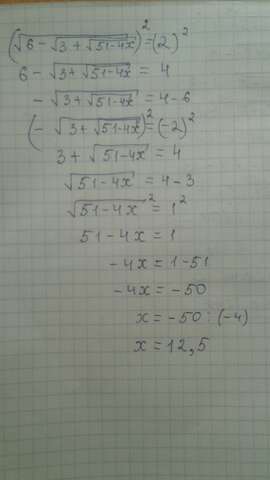 (√(6 - √(3 + √(51-4x))))² = (2)²
6 - √(3 + √(51-4x)) = 4
- √(3 + √(51-4x)) = 4-6
(- √(3 + √(51-4x)))² = (-2)²
3 + √(51-4x) = 4
√(51-4x) = 4-3
√(51-4x)² = 1²
51-4x = 1
-4x = 1-51
-4x = -50
x = -50 : (-4)
x = 12,5